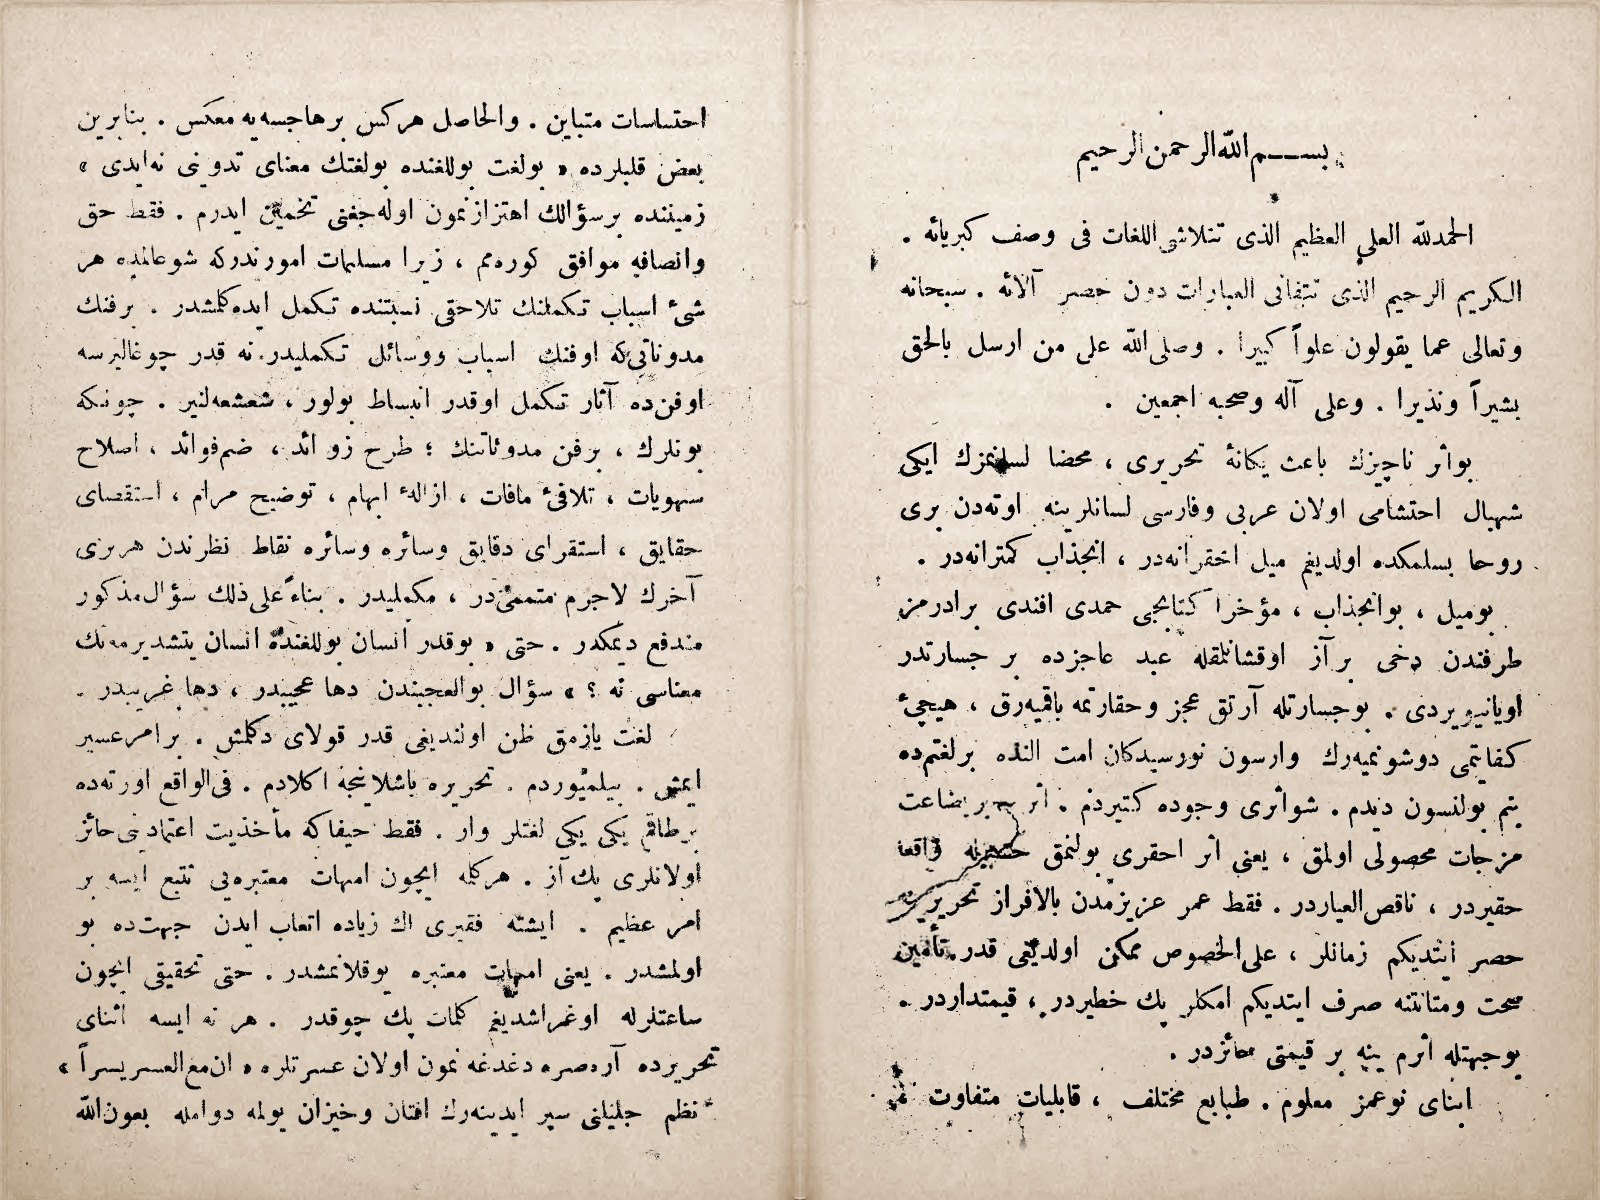 بسم الله الرحمن الرحيم
الحمدلله العلى العظيم الذى تتلاشى اللغات فى وصف كبريائه .
الكريم الرحيم الذى تتفانى العبارات دون حصر آلائه . سبحانه
وتعالى عما يقولون علواً كبيرا . وصلى الله على من ارسل بالحق
بشيراً ونذيرا . وعلى آله وصحبه اجمعين .
بواثر ناچيزك باعث يكانهٔ تحريرى ، محضا لسانمزك ايكى
شهبال احتشامى اولان عربى وفارسى لسانلرينه اوتەدن برى
روحا بسلمكده اولديغم ميل احقرانەدر ، انجذاب كمترانەدر .
بوميل ، بوانجذاب ، مؤخرا كتابجى حمدى افندى برادرمز
طرفندن دخى برآز اوقشانلمقله عبد عاجزده بر جسارتدر
اويانيويردى . بوجسارتله آرتق عجز وحقارتمه باقميەرق ، هيچئ
كفايتمى دوشونميەرك وارسون نورسيدكان امت النده برلغتمده
بنم بولنسون ديدم . شواثرى وجوده كتيردم . اثر بر بضاعت
مزجات محصولى اولمق ، يعنى اثر احقرى بولنمق واقعا
حقيردر ، ناقص العياردر . فقط عمر عزيزمدن بالافراز تحرير
حصر ايتديكم زمانلر ، على الخصوص ممكن اولديغى قدر تأمين
صحت ومتانتنه صرف ايتديكم امكلر پك خطيردر ، قيمتداردر .
بوجهتله اثرم ينه بر قيمتى حائزدر .
ابناى نوعمز معلوم . طبايع مختلف ، قابليات متفاوت
احتساسات متباين . والحاصل هركس برهاجسەيه معكس . بنابرين
بعض قلبلرده « بولغت بوللغنده بولغتك معناى تدوينى نەايدى »
زميننده برسؤالك اهتزازنمون اولەجغنى تخمين ايدرم . فقط حق
وانصافه موافق كورەمم ، زيرا مسلمات اموردندركه شوعالمده هر
شئ اسباب تكملنك تلاحقى نسبتنده تكمل ايدەكلمشدر . برفنك
مدوناتى كه اوفنك اسباب ووسائل تكمليدر . نه قدر چوغاليرسه
اوفنده آثار تكمل اوقدر انبساط بولور ، شعشعەلنير . چونكه
بونلرك ، برفن مدوناتنك ؛ طرح زوائد ، ضم فوائد ، اصلاح
سهويات ، تلافئ مافات ، ازالهٔ ابهام ، توضيح مرام ، استقصاى
حقايق ، استقراى دقايق وسائره وسائره نقاط نظرندن هربرى
آخرك لاجرم متممىدر ، مكمليدر . بناءً على ذلك سؤال مذكور
مندفع ديمكدر . حتى « بوقدر انسان بوللغنده انسان يتشديرمەنك
معناسى نه ؟ » سؤال بوالعجبندن دها عجيبدر ، دها غريبدر .
لغت يازمق ظن اولنديغى قدر قولاى دكلمش . برامرعسير
ايمش . بيلميوردم . تحريره باشلاينجه اكلادم . فى الواقع اورتەده
برطاقم يكى يكى لغتلر وار . فقط حيفاكه مأخذيت اعتمادينى حائز
اولانلرى پك آز . هركله ايچون امهات معتبرەيى تتبع ايسه بر
امر عظيم . ايشته فقيرى اك زياده اتعاب ايدن جهتده بو
اولمشدر . يعنى امهات معتبره يوقلانمشدر . حتى تحقيقى ايچون
ساعتلرله اوغراشديغم كلمات پك چوقدر . هر نه ايسه اثناى
تحريرده آرەصره دغدغه نمون اولان عسرتلره « ان مع العسر يسراً »
نظم جليلنى سپر ايدينەرك افتان وخيزان يولمه دوامله بعون الله